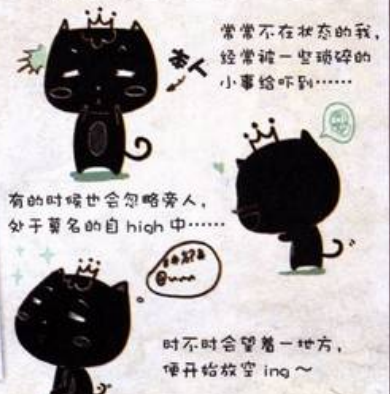 常常不在状态的我，
经常被一些琐碎的
小事给吓到……
本人
有的时候也会忽略旁人，
处于莫名的自 high 中……
时不时会望着一地方，
便开始放空 ing～